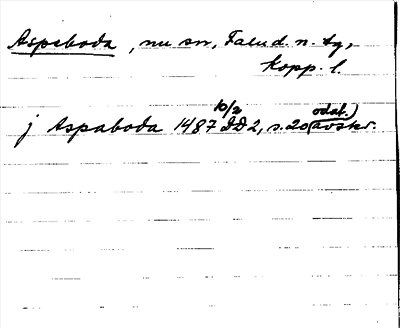 Aspeboda, nu sn, Falu d. n. tg,
Kopp. l.
j Aspaboda 1487 10/2 DD 2, s. 20 (odat.) avskr.